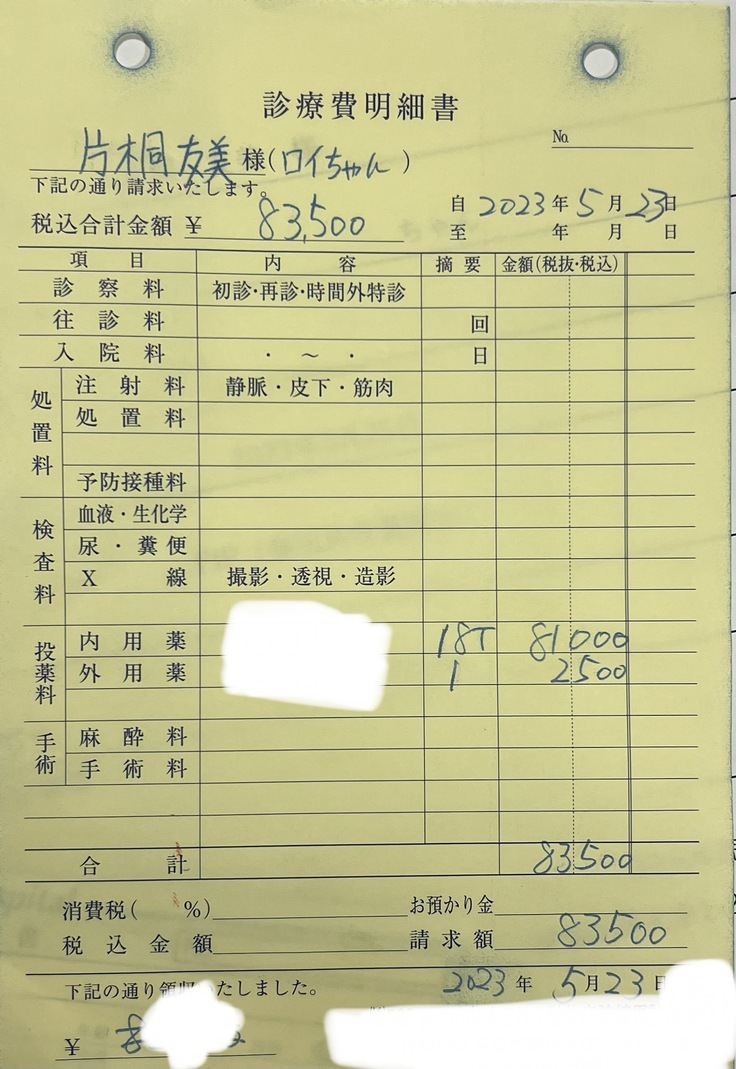 診療費明細書
No.
片桐友美様(ロイちゃん)
下記の通り請求いたします。
税込合計金額 ¥ 83,500
自 2023年5月23日
至 年 月 日
項目 内容 摘要 金額(税抜・税込)
診察料 初診・再診・時間外特診
往診料 回
入院料 ・ ~ ・ 日
処置料
注射料 静脈・皮下・筋肉
処置料
予防接種料
検査料
血液・生化学
尿・糞便
X線 撮影・透視・造影
投薬料
内用薬 18T 81000
外用薬 1 2500
手術
麻酔料
手術料
合計 83500
消費税( %) お預かり金
税込金額 請求額 83500
下記の通り領収いたしました。 2023年5月23日
¥